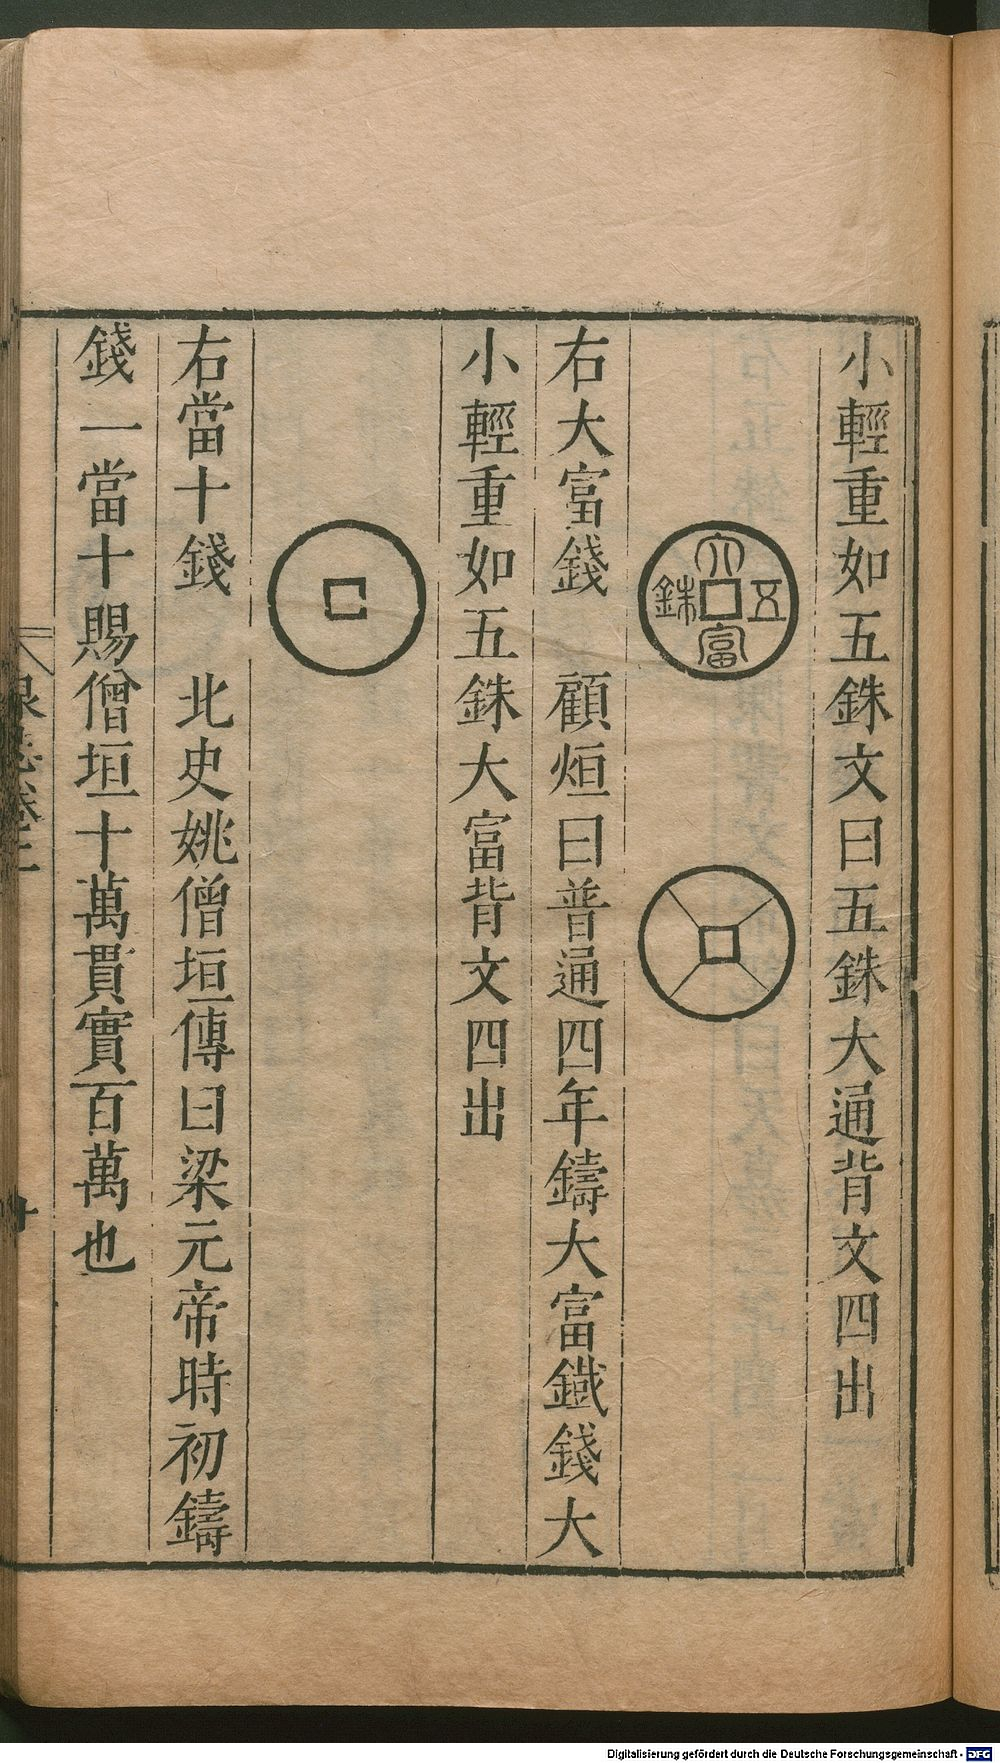 小輕重如五銖文曰五銖大通背文四出
大富五銖
右大富錢　顧烜曰普通四年鑄大富鐵錢大
小輕重如五銖大富背文四出
右當十錢　北史姚僧垣傳曰梁元帝時初鑄
錢一當十賜僧垣十萬貫實百萬也
Digitalisierung gefördert durch die Deutsche Forschungsgemeinschaft - DFG